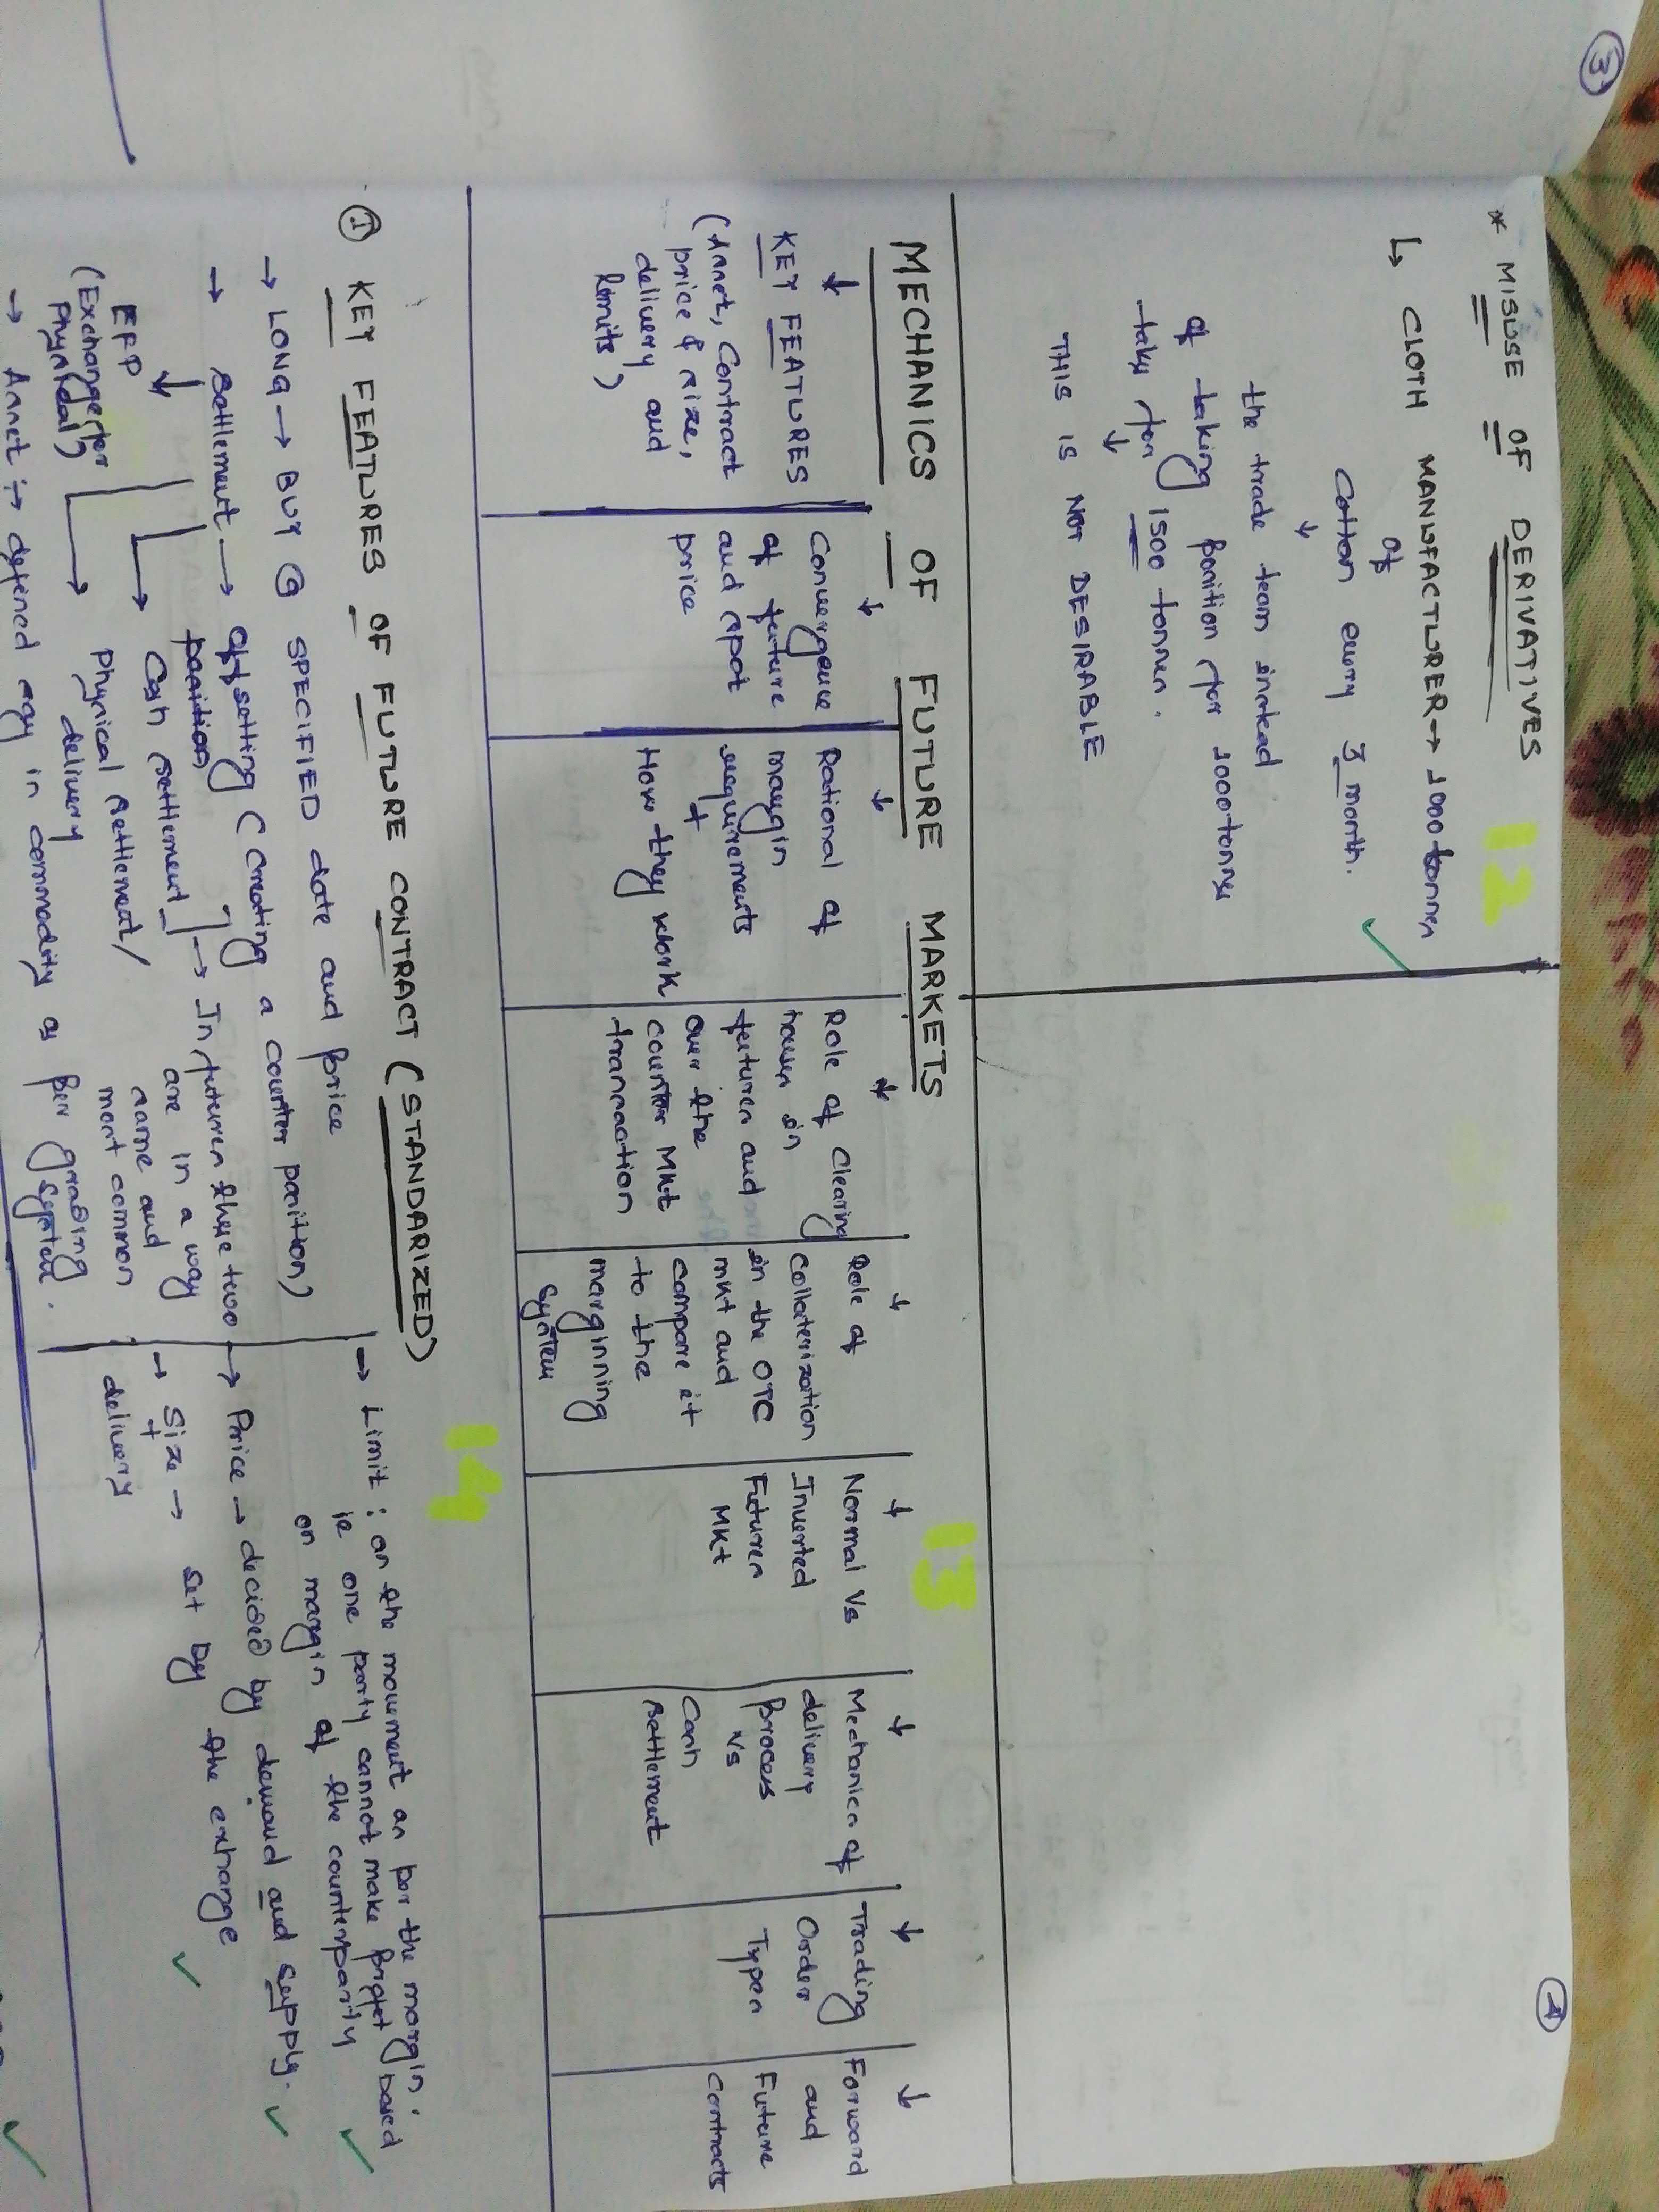 3
4
* MISUSE OF DERIVATIVES
12
↳ CLOTH MANUFACTURER → 1000 tonnes
of
Cotton every 3 month.
↓
the trade team instead
of taking position for 1000 tonnes
takes for 1500 tonnes.
↓
THIS IS NOT DESIRABLE
MECHANICS OF FUTURE MARKETS
13
↓
KEY FEATURES
(Asset, Contract
price & size,
delivery and
limits)
↓
Convergence
of future
and spot
price
↓
Rational of
margin
requirements
+
How they work
↓
Role of Clearing
houses in
futures and
over the
counter Mkt
transaction
↓
Role of
Collaterization
in the OTC
mkt and
compare it
to the
margining
system
↓
Normal Vs
Inverted
Futures
Mkt
↓
Mechanics of
delivery
process
Vs
Cash
settlement
↓
Trading
Order
Types
↓
Forward
and
Future
Contracts
14
① KEY FEATURES OF FUTURE CONTRACT (STANDARIZED)
→ LONG → BUY @ SPECIFIED date and price
→ settlement → offsetting (Creating a counter position)
position
→ Cash settlement
→ In futures these two
are in a way
same and
most common
↓
EFP
(Exchange for
Physical)
→ Physical settlement/
delivery
→ Asset is defined esy in commodity as per grading
system.
→ Limit : on the movement as per the margin.
ie one party cannot make profit based
on margin of the counterparty
→ Price → decided by demand and supply.
→ Size → set by the exchange
+
delivery